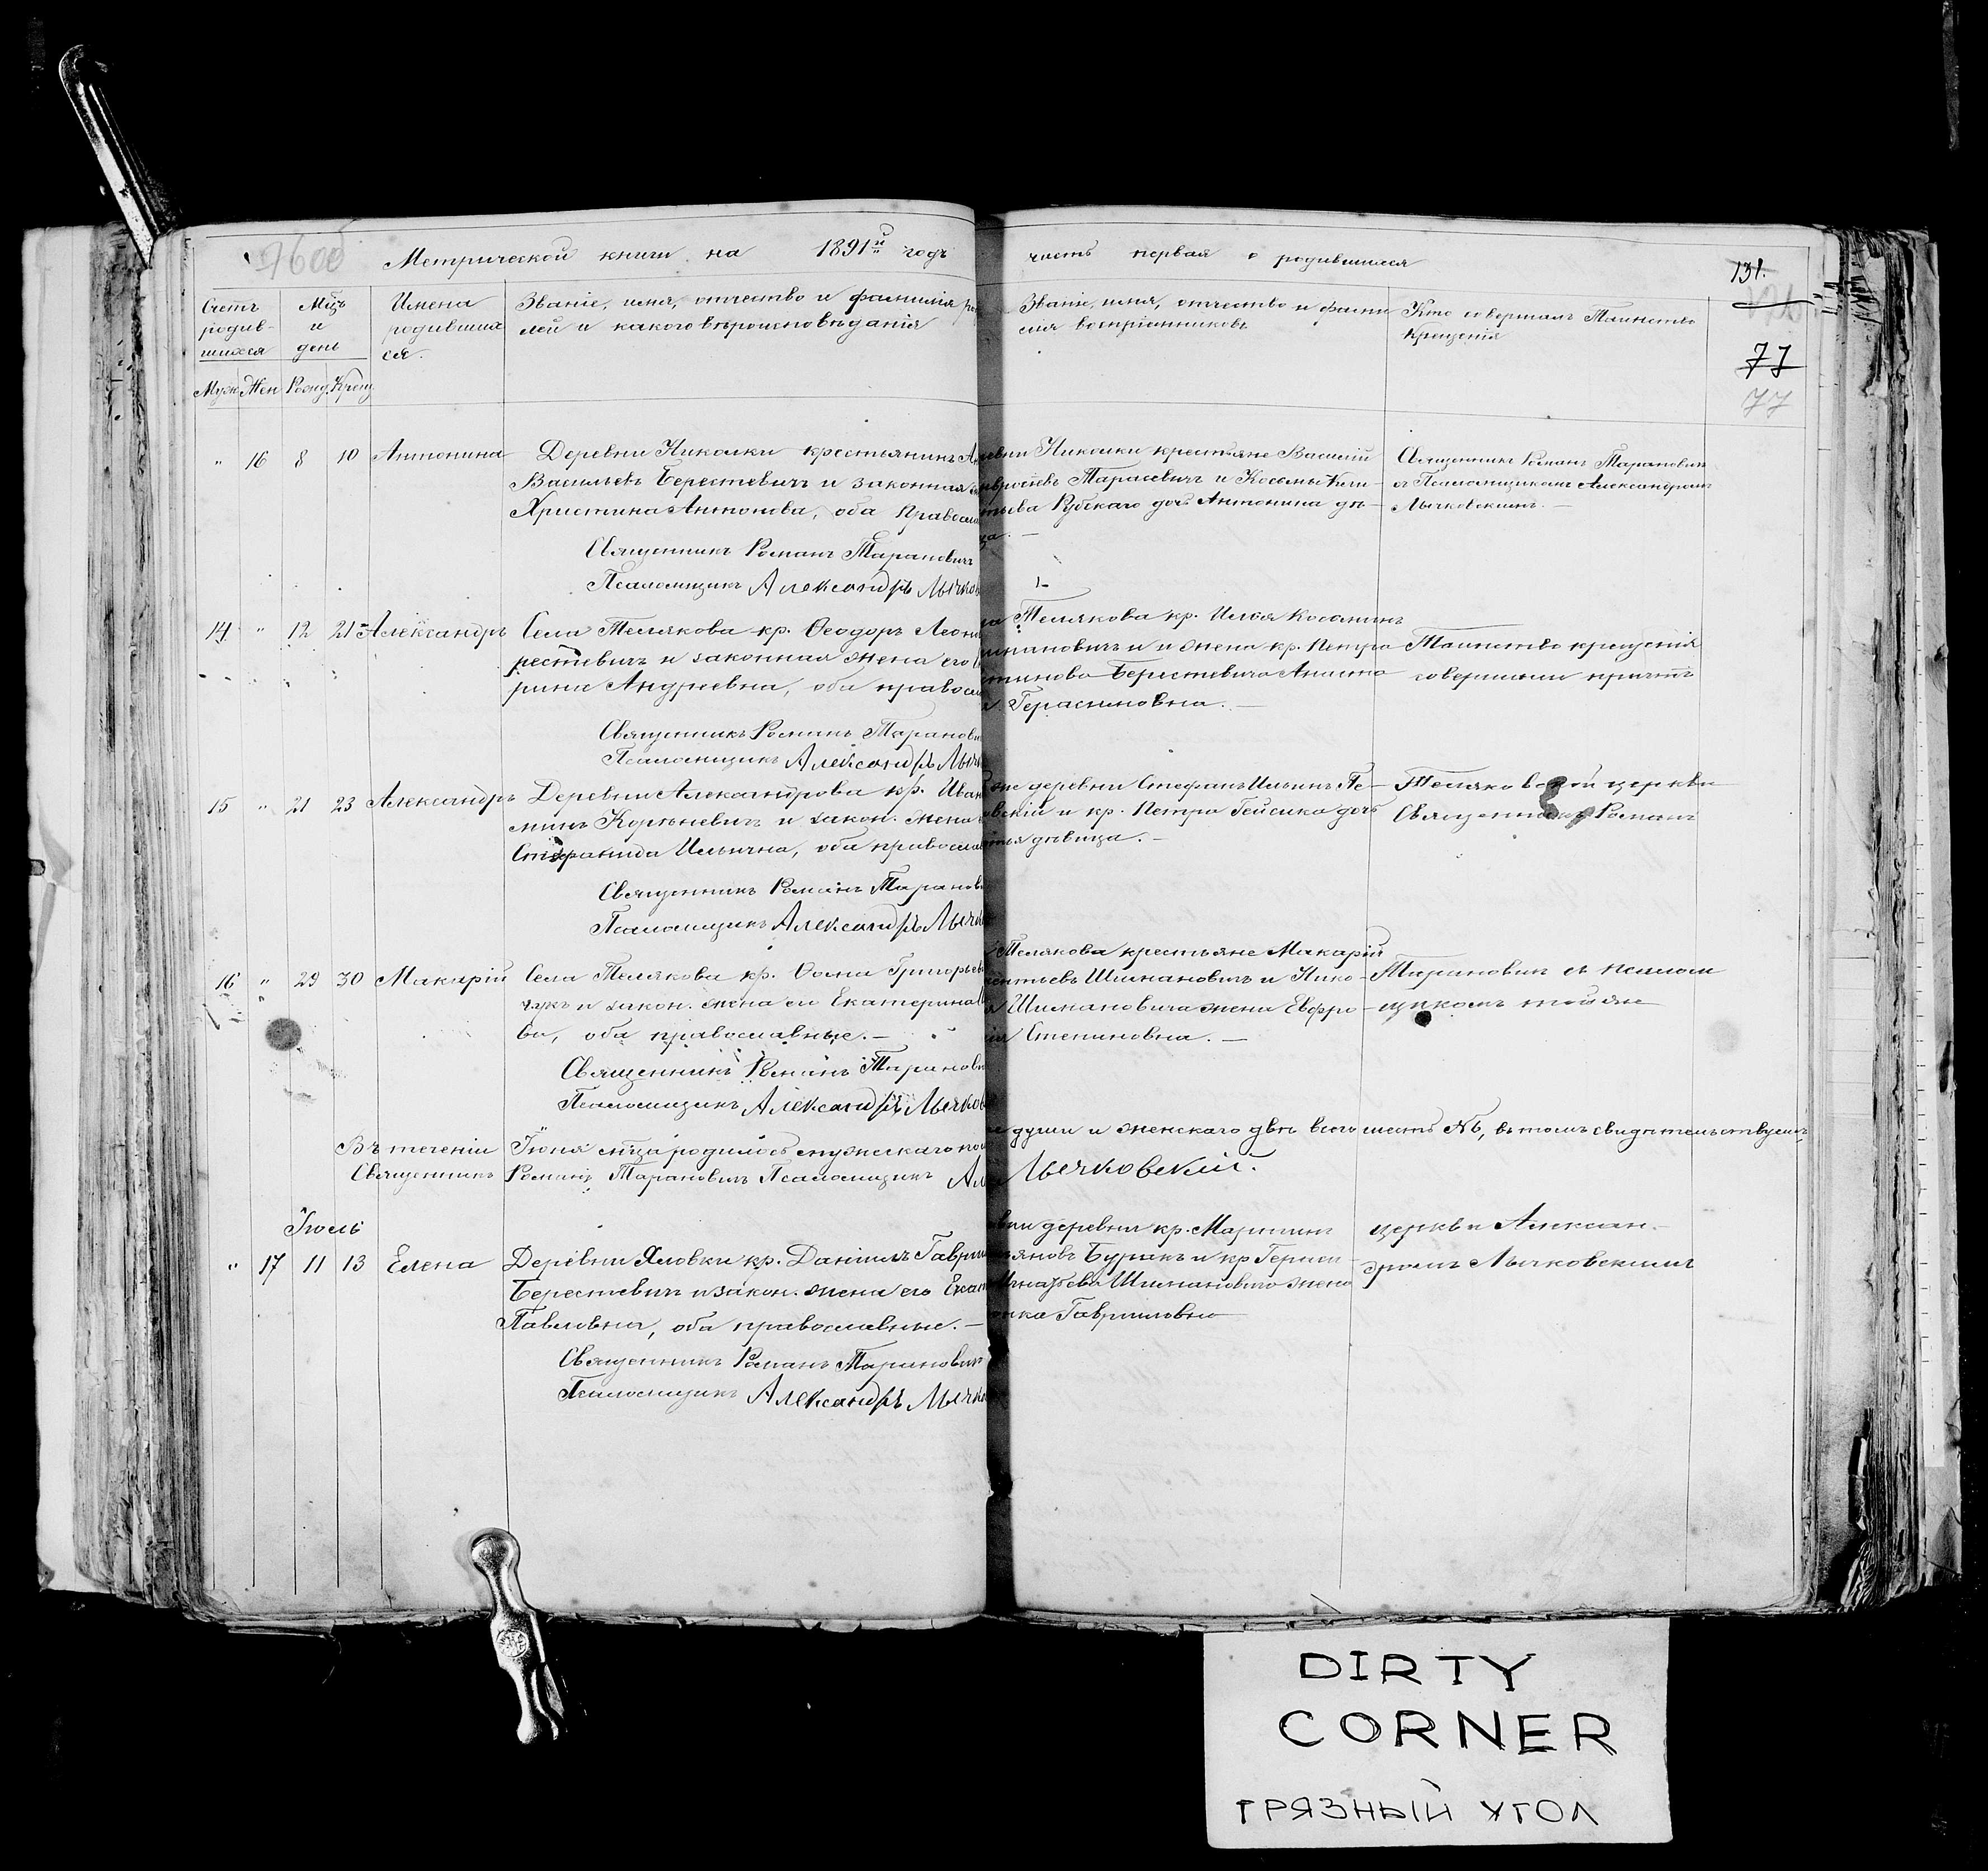 Метрической книги на 1891й годъ часть первая о родившихся
131.
77
77
Счетъ родив- шихся
Мцъ и день
Имена родивших ся.
Званіе, имя, отчество и фамилія ро
лей и какого вѣроисповѣданія
Званіе, имя, отчество и фами
лія воспріемниковъ
Кто совершалъ Таинство
Крещенія
Муж Жен Рожд. Крещ
" 16 8 10 Антонина
Деревни Николки крестьянинъ
Васильевъ Берестевичъ и законная
Христина Антонова, оба Правосла
Священникъ Романъ Тарановичъ
Псаломщикъ Александръ Лычков
Николки крестьяне Василій
Тарасевичъ и Косьмы
Рубскаго дочь Антонина дѣ-
ца.
Священникъ Романъ Тарановичъ
съ Псаломщикомъ Александромъ
Лычковскимъ.
14 " 12 21 Александръ
Села Телякова кр. Ѳеодоръ Леон
рестевичъ и законная жена его
рина Андреевна, оба правосл
Священникъ Романъ Тарановичъ
Псаломщикъ Александръ Лычк
Телякова кр. Илья
и жена кр. Петра
Берестевича
Герасимовна.
Таинство крещенія
совершили причтъ
15 " 21 23 Александръ
Деревни Александрова кр. Иван
Корѣневичъ и закон. жена
Ильична, оба правосла
Священникъ Романъ Таранов
Псаломщикъ Александръ Лычк
деревни Стефанъ Ильинъ Пе-
вскій и кр. Петра Гейсика дочь
дѣвица.
Теляковской церкви
Священникъ Романъ
16 " 29 30 Макарій
Села Телякова кр. Ѳома Григорьев
чукъ и закон. жена его Екатерина
ва, оба православные.
Священникъ Романъ Таранови
Псаломщикъ Александръ Лычков
Телякова крестьяне Макарій
Шимановичъ и Нико-
Шимановича жена Евфро-
Степановна.
Тарановичъ съ псалом
щикомъ той же
Въ теченіи Іюня мца родилось мужскаго по
души и женскаго двѣ всего шесть №, въ томъ свидѣтельствуемъ,
Священникъ Романъ Тарановичъ Псаломщикъ Ал
Лычковскій.
Іюль
" 17 11 13 Елена
Деревни Яловки кр. Даніилъ Гаврии
Берестевичъ и закон. жена его Екат
Павловна, оба православные.
Священникъ Романъ Тарановичъ
Псаломщикъ Александръ Лычко
деревни кр. Мартинъ
Буракъ и кр
Шимановича жена
Гавриловна
церкви Алексан-
дромъ Лычковскимъ
DIRTY
CORNER
ГРЯЗНЫЙ УГОЛ